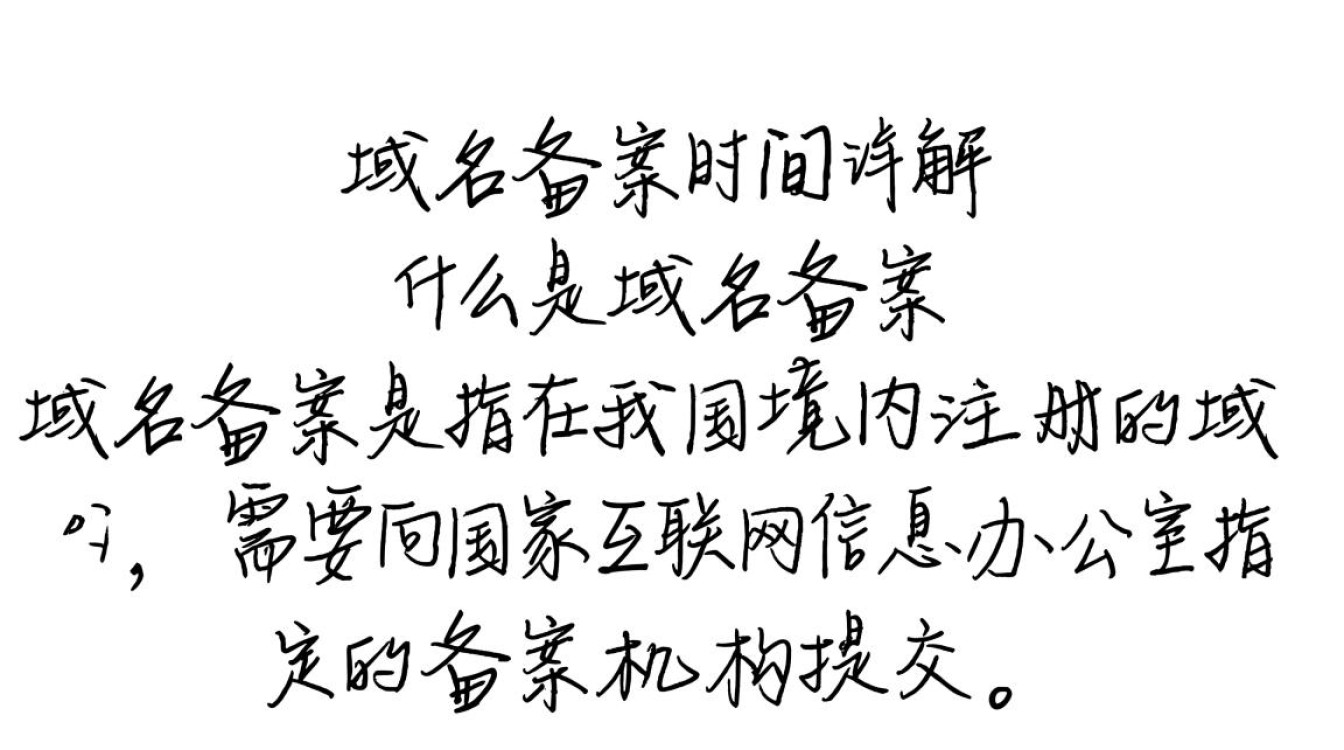 域名备案时间详解
什么是域名备案
域名备案是指在我国境内注册的域
，需要向国家互联网信息办公室指
定的备案机构提交。